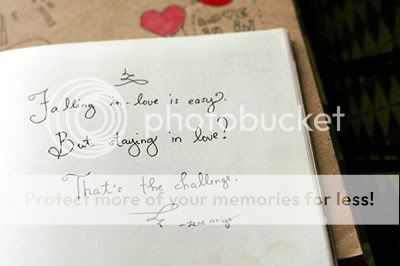 Falling in-love is easy.
But staying in love?
That's the challenge.
photobucket
Protect more of your memories for less!